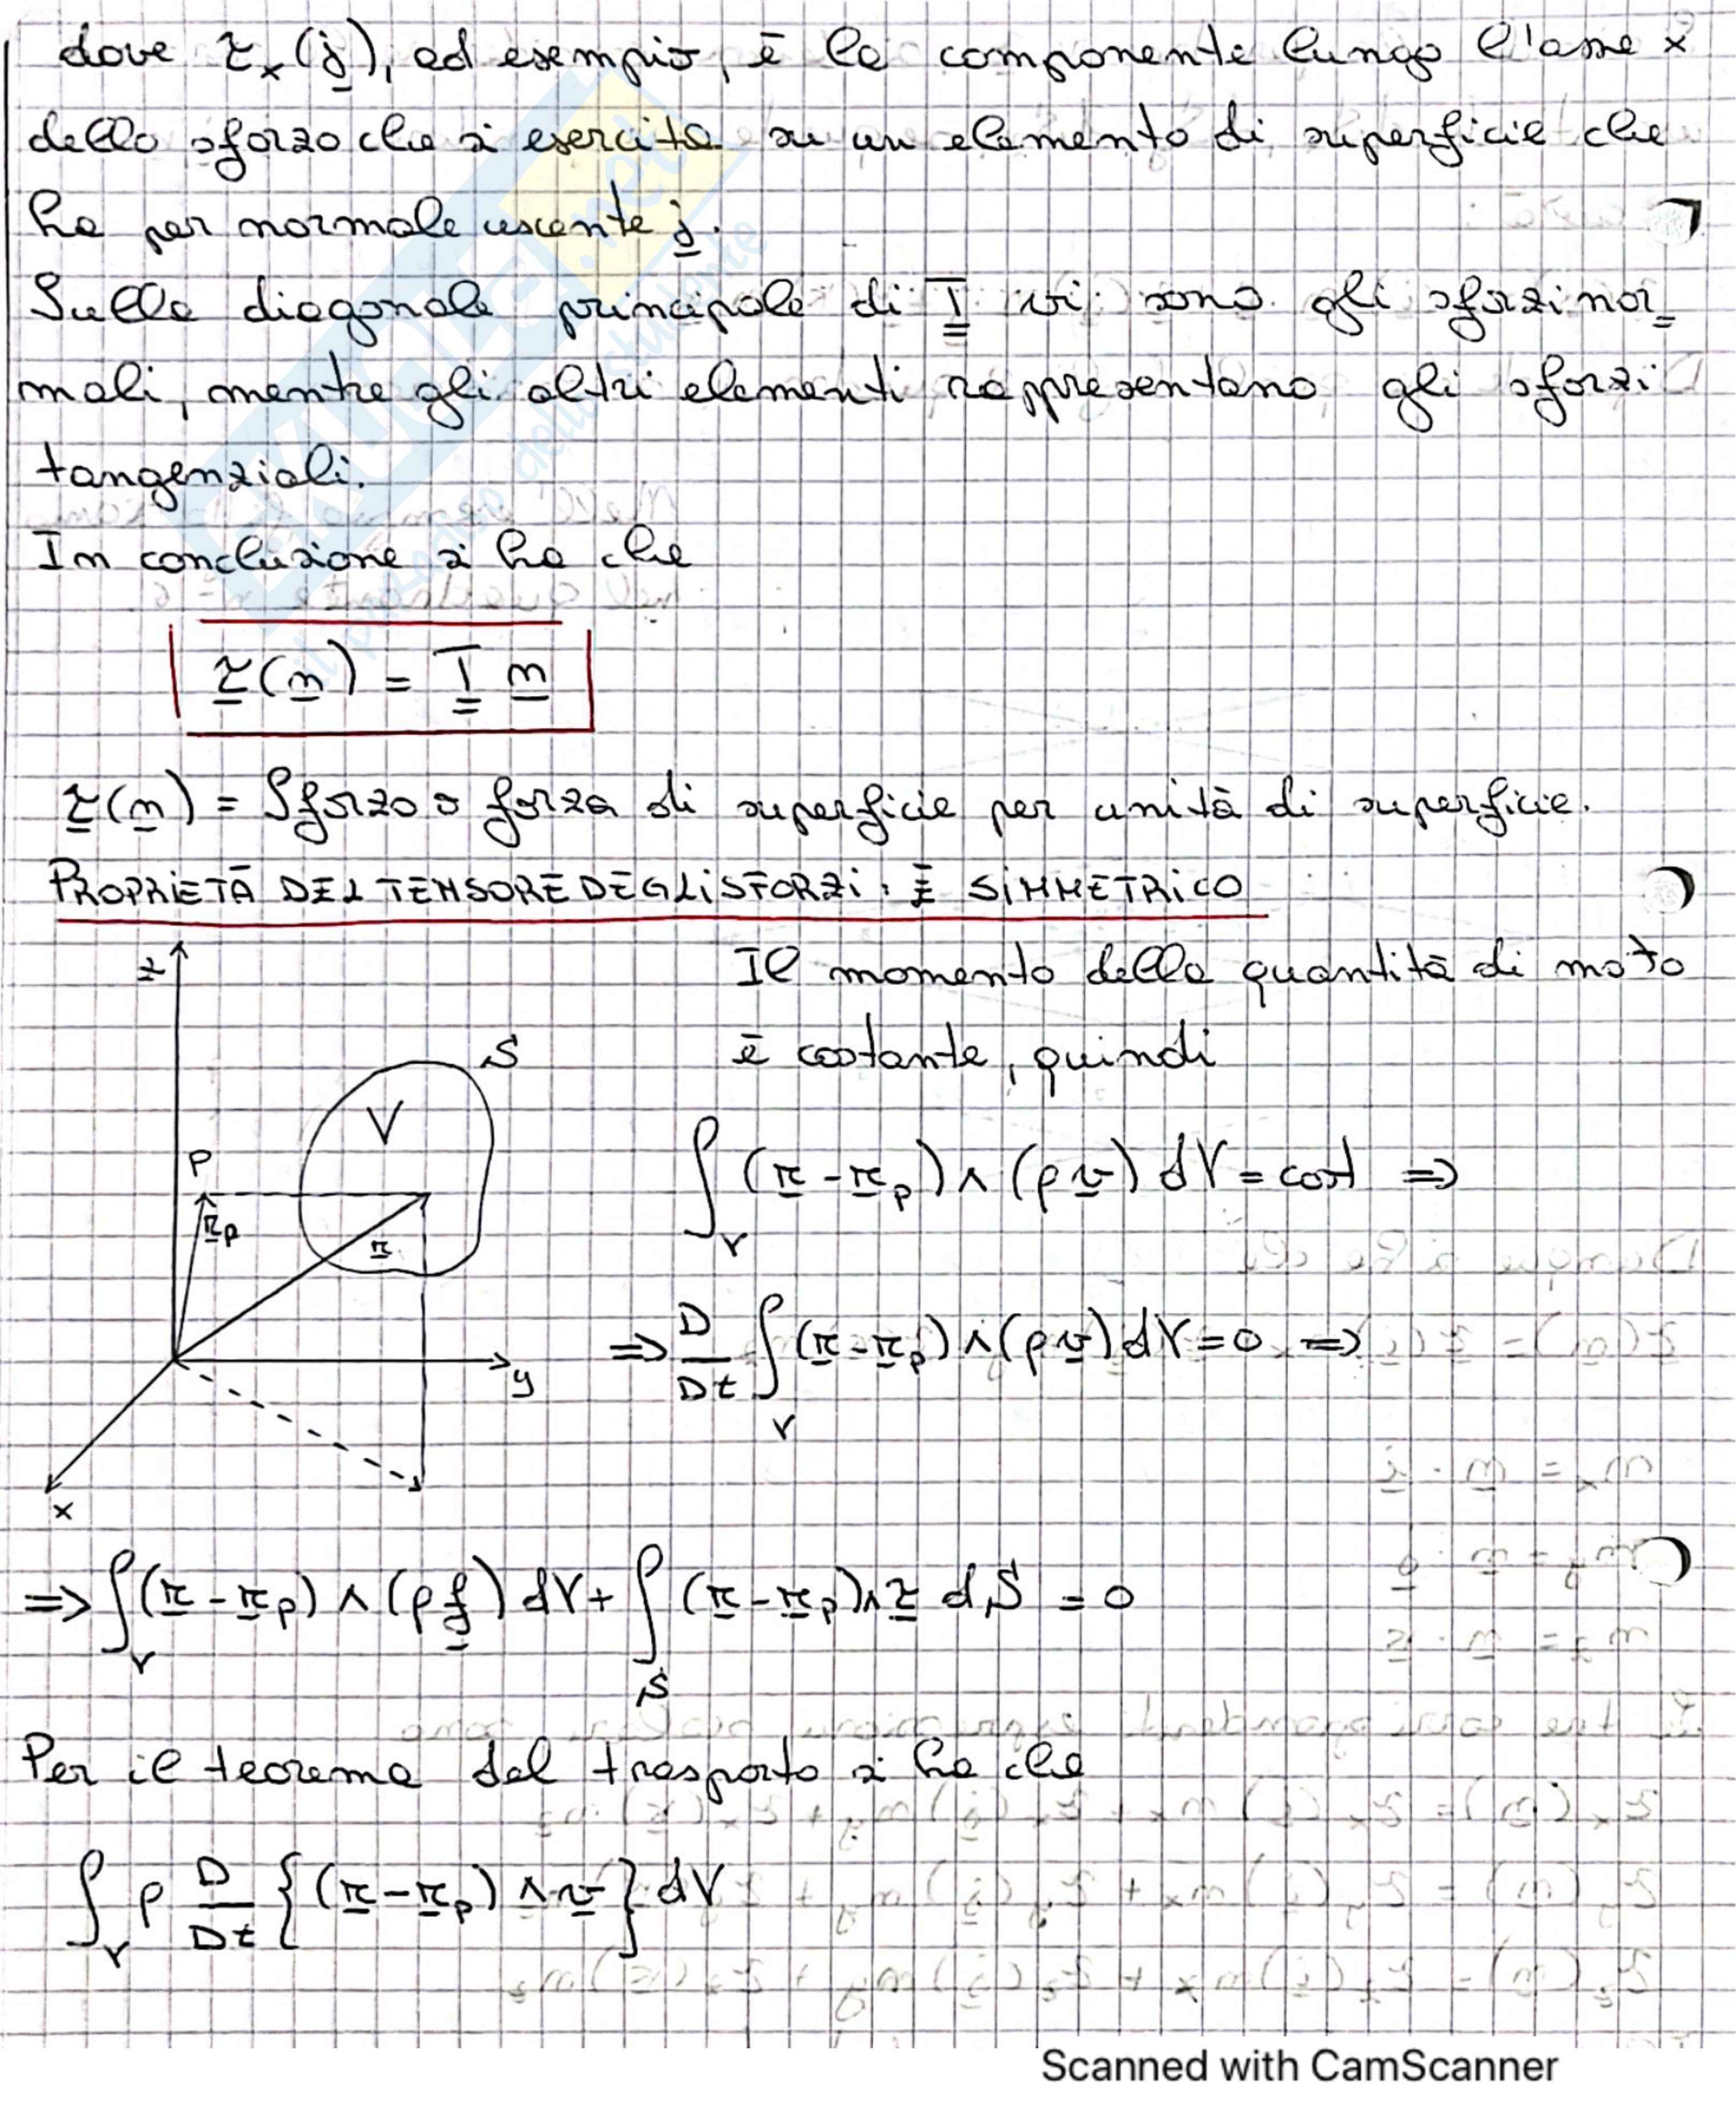 dove τₓ(j), ad esempio, è la componente lungo l'asse x
dello sforzo che si esercita su un elemento di superficie che
ha per normale uscente j.
Sulla diagonale principale di T vi sono gli sforzi nor=
mali, mentre gli altri elementi rappresentano gli sforzi
tangenziali.
In conclusione si ha che
τ(n) = T n
τ(n) = Sforzo o forza di superficie per unità di superficie.
PROPRIETÀ DEL TENSORE DEGLI SFORZI: È SIMMETRICO
Il momento della quantità di moto
è costante, quindi
z
S
V
P
r_P
r
y
x
∫_V (r - r_P) ∧ (ρ v) dV = cost ⇒
⇒ D/Dt ∫_V (r - r_P) ∧ (ρ v) dV = 0 ⇒
⇒ ∫_V (r - r_P) ∧ (ρ f) dV + ∫_S (r - r_P) ∧ τ dS = 0
Per il teorema del trasporto si ha che
∫_V ρ D/Dt {(r - r_P) ∧ v} dV
Scanned with CamScanner